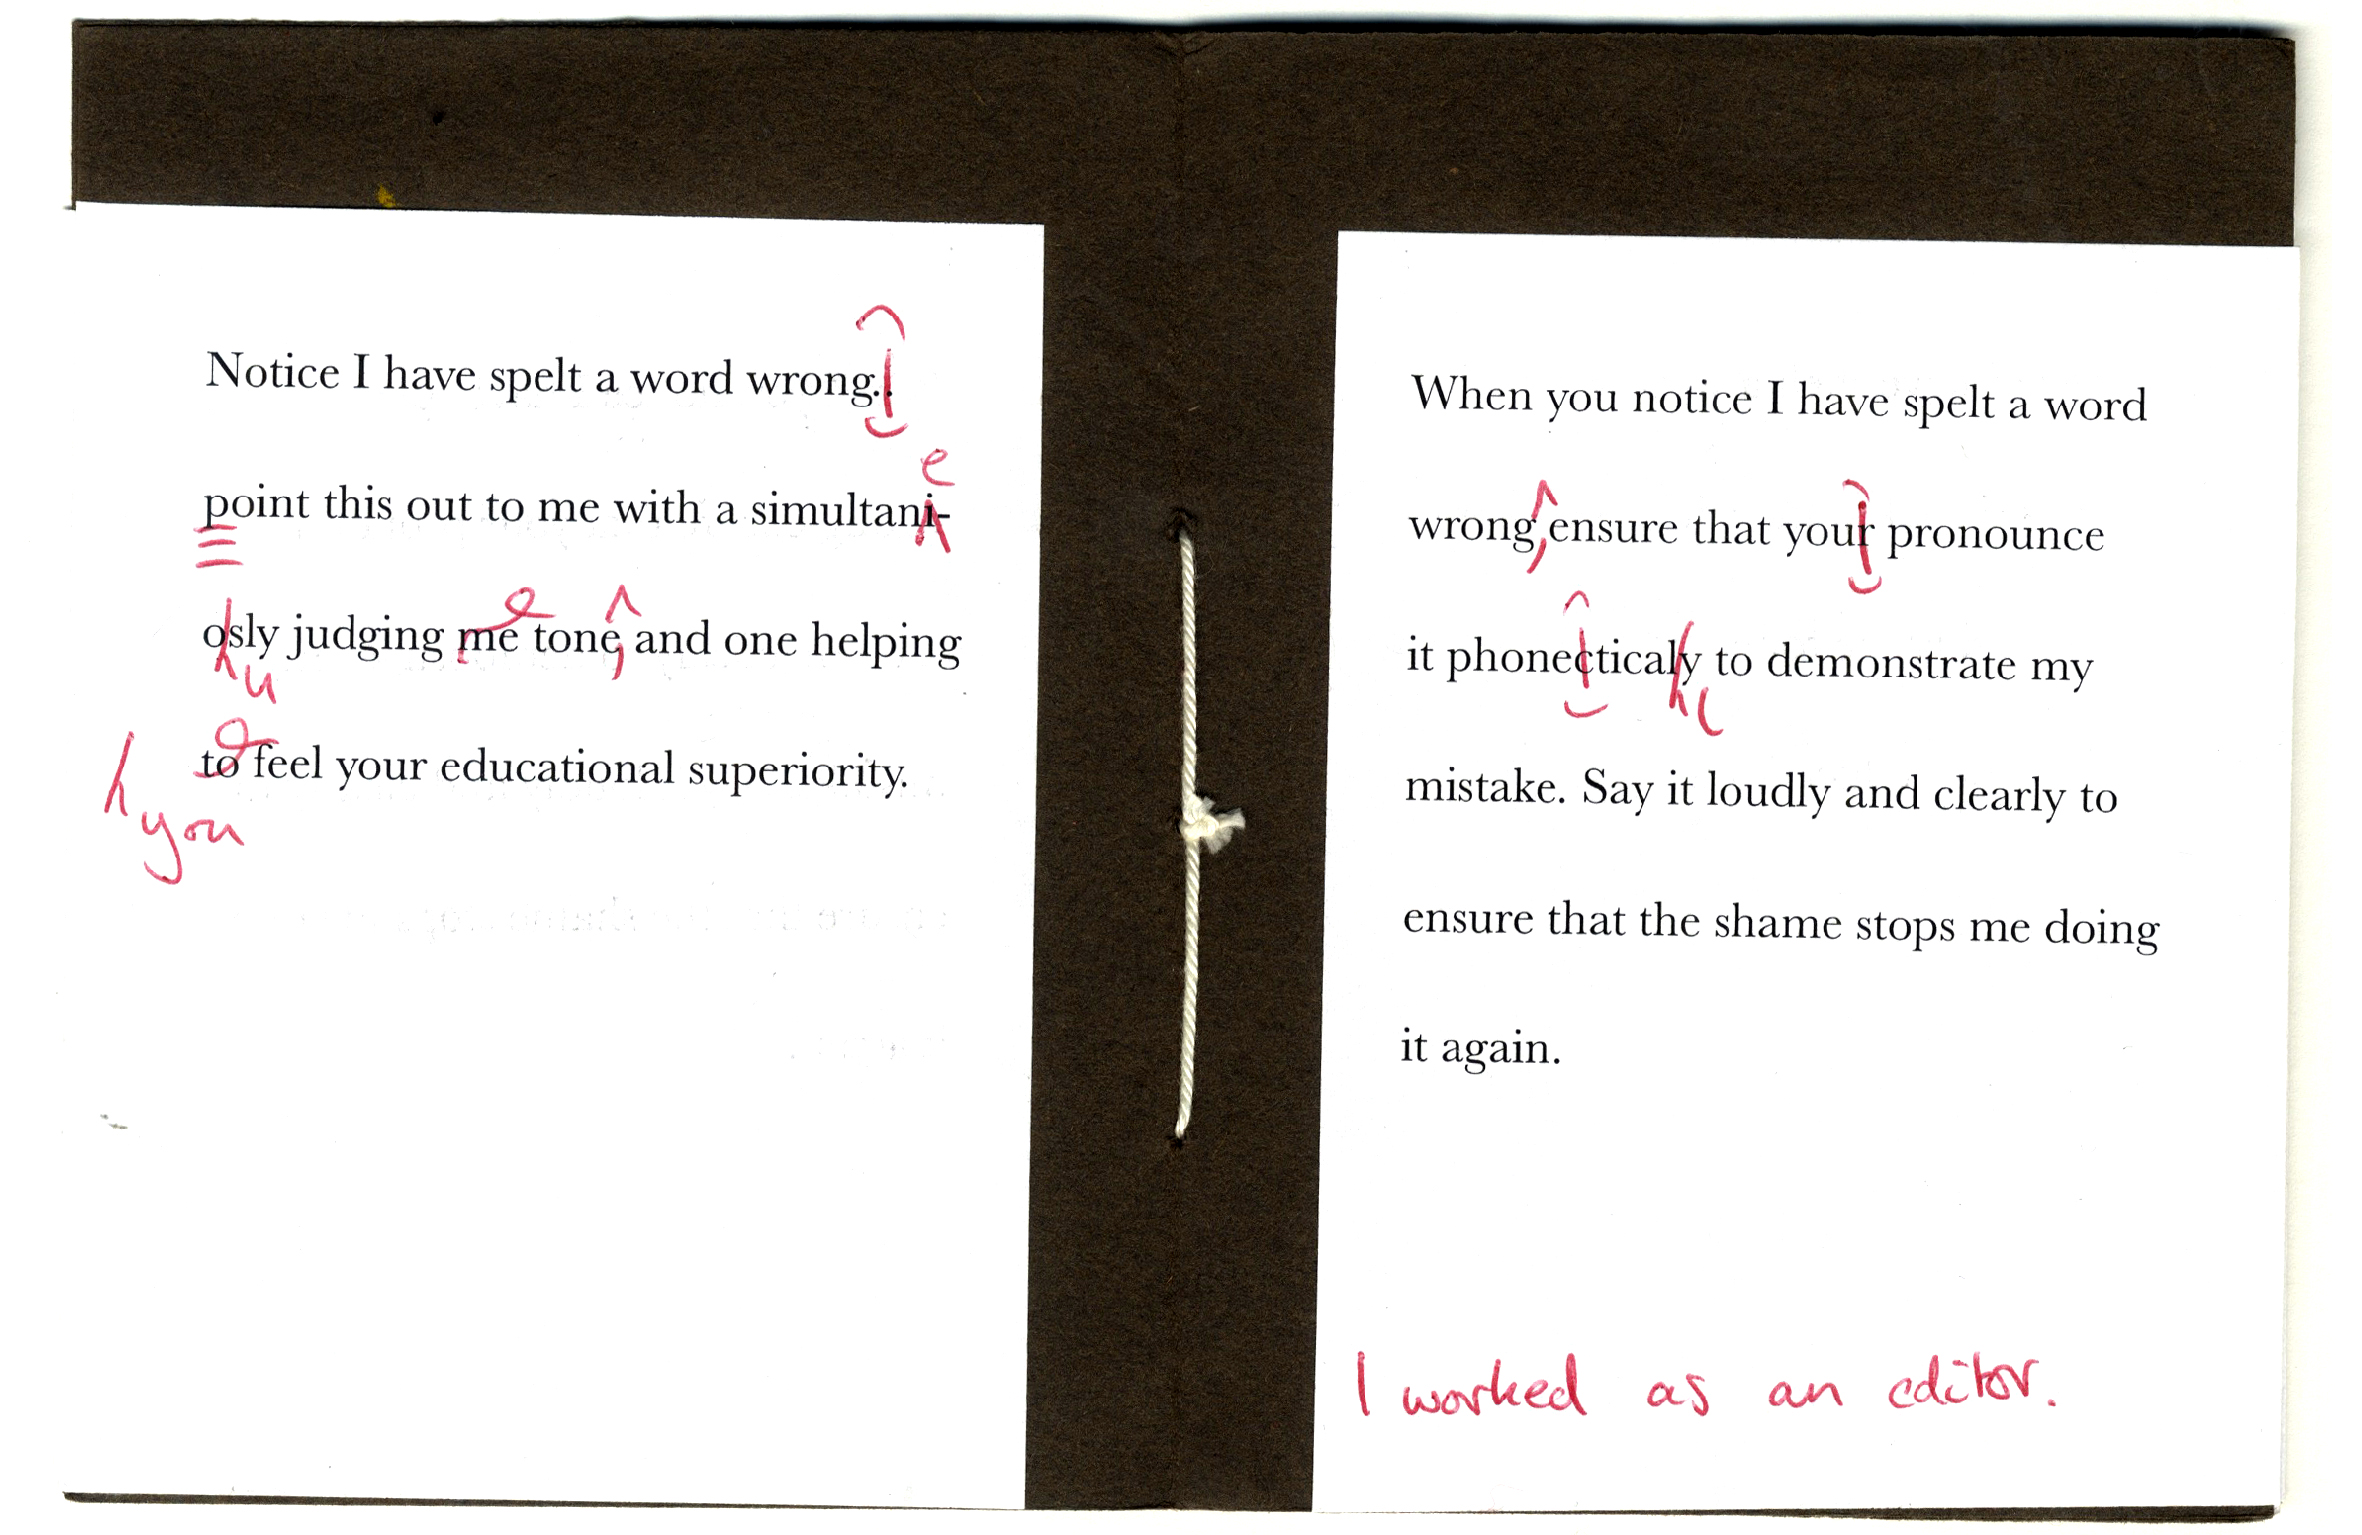 Notice I have spelt a word wrong..
e
point this out to me with a simultani-
osly judging me tone, and one helping
u
to feel your educational superiority.
you
When you notice I have spelt a word
wrong, ensure that your pronounce
it phonectically to demonstrate my
l
mistake. Say it loudly and clearly to
ensure that the shame stops me doing
it again.
I worked as an editor.